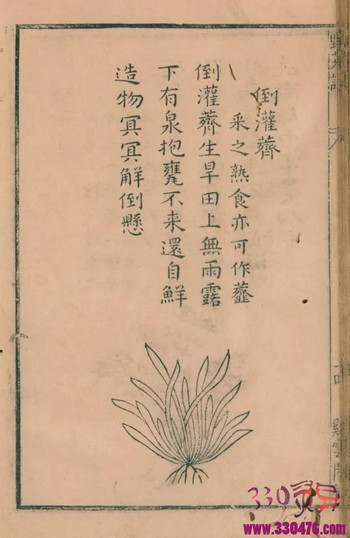 倒灌薺
采之熟食亦可作虀
倒灌薺生旱田上無雨露
下有泉抱甕不来還自鮮
造物冥冥解倒懸
330
www.330476.com